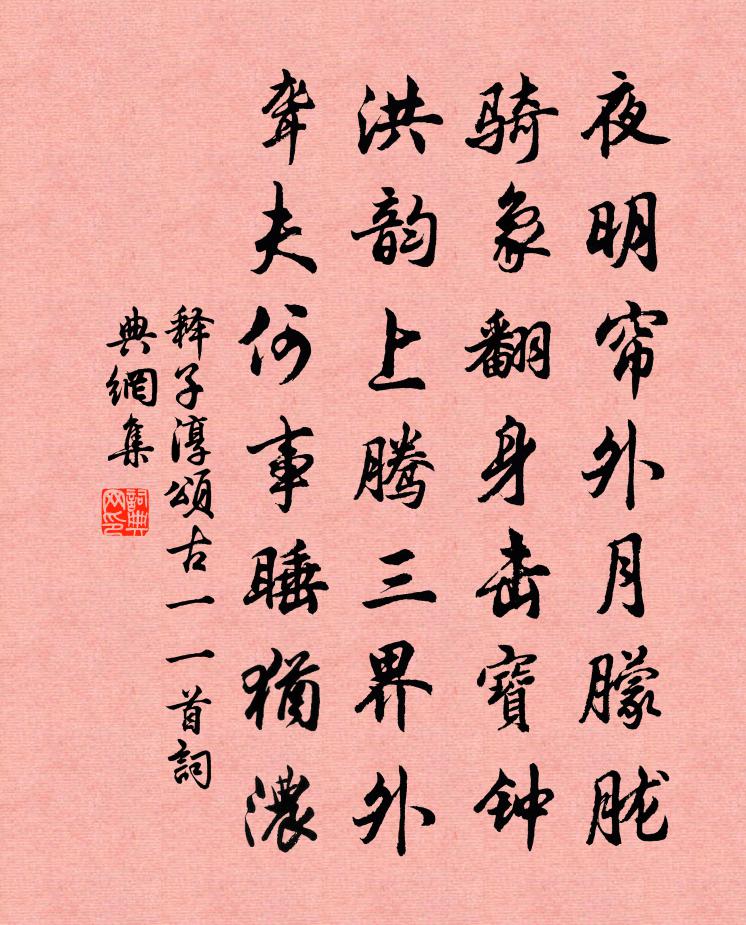 夜明帘外月朦胧
骑象翻身击宝钟
洪韵上腾三界外
聋夫何事睡犹浓
释子淳颂古一一首詞
典網集
詞典
网印